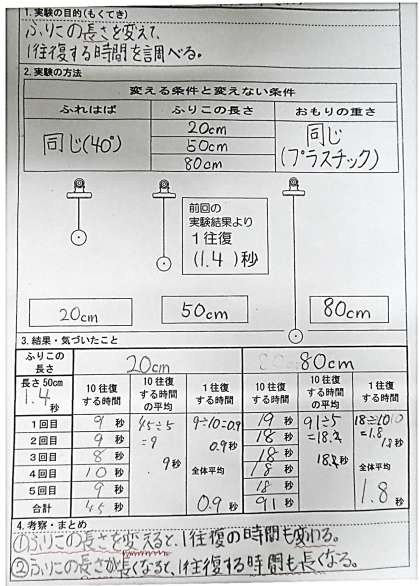 1.実験の目的(もくてき)
ふりこの長さを変えて、
1往復する時間を調べる。
2.実験の方法
変える条件と変えない条件
ふれはば ふりこの長さ おもりの重さ
同じ(40°) 20cm 同じ
50cm (プラスチック)
80cm
前回の
実験結果より
1往復
(1.4)秒
20cm 50cm 80cm
3.結果・気づいたこと
ふりこの長さ 20cm 80cm
長さ50cm 10往復する時間 10往復する時間の平均 1往復する時間 10往復する時間 10往復する時間の平均 1往復する時間
1.4秒
1回目 9秒 45÷5 9÷10=0.9 19秒 91÷5 18÷10
2回目 9秒 =9 0.9秒 18秒 =18.2 =1.8
3回目 8秒 9秒 18秒 18.2秒 1.8秒
4回目 10秒 全体平均 18秒 全体平均
5回目 9秒 18秒
合計 45秒 0.9秒 91秒 1.8秒
4.考察・まとめ
①ふりこの長さを変えると、1往復の時間も変わる。
②ふりこの長さが長くなると、1往復する時間も長くなる。